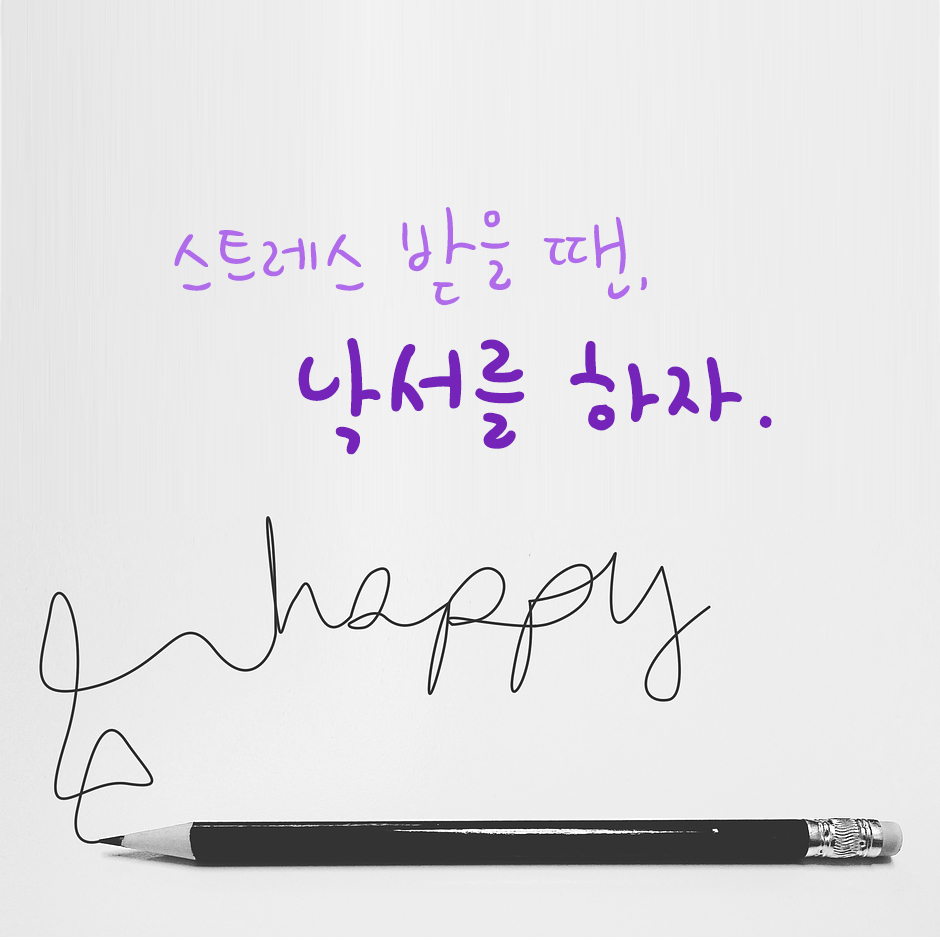 스트레스 받을 땐,
낙서를 하자.
happy